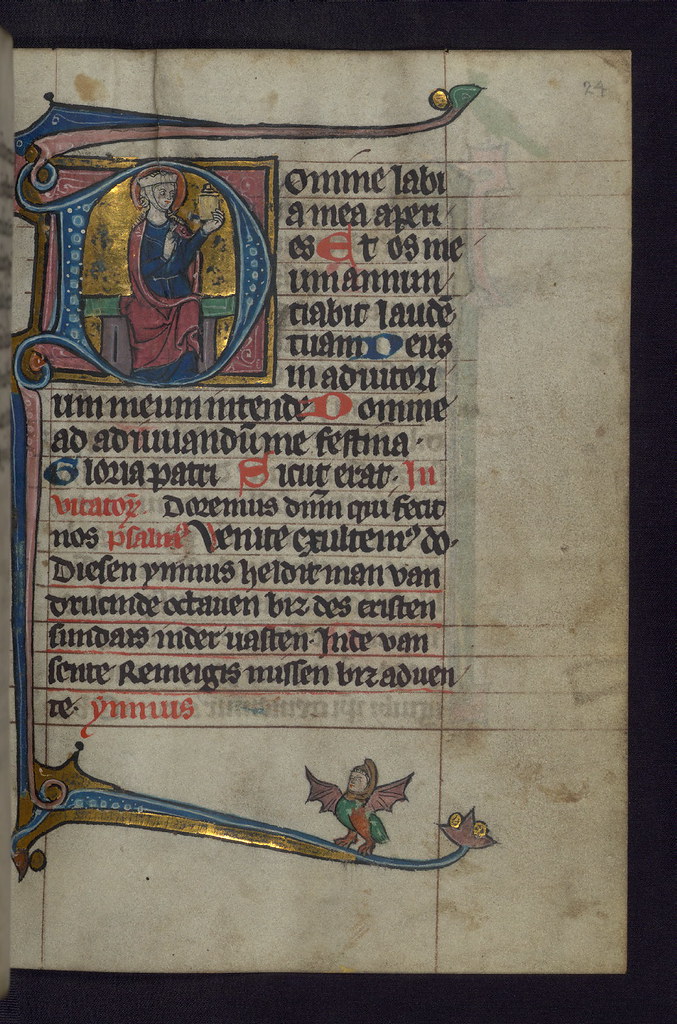 24
Domine labi
a mea aperi
es Et os me
um annun
tiabit laudē
tuam Deus
in adiutori
um meum intende Domine
ad adiuuandū me festina.
Gloria patri Sicut erat. In
uitatoꝝ Doremus dnm̄ qui fecit
nos psalmꝰ Venite exultemꝰ do.
Diesen ymnus heldit man van
druzinde octauen biz des eristen
sundais inder uasten. Inde van
sente Remeigis missen biz aduen
te. ymnus